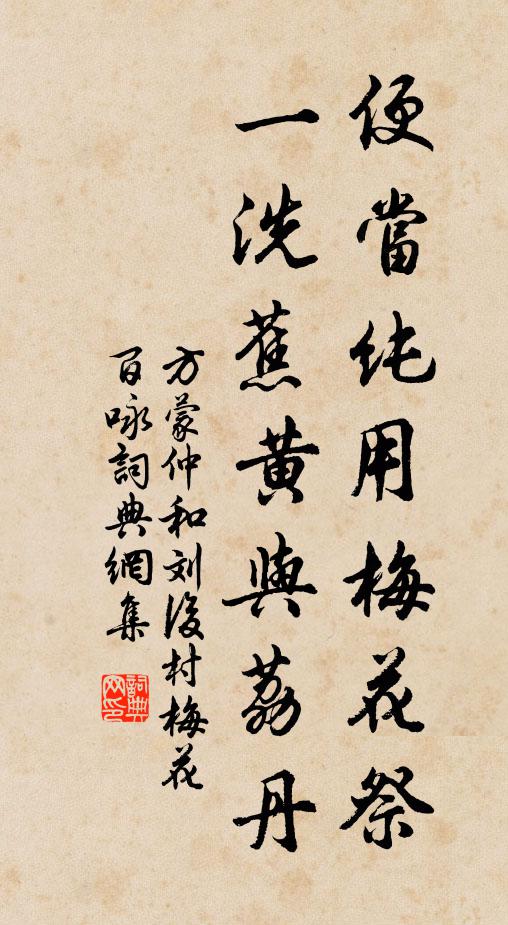 便當純用梅花祭
一洗蕉黄與荔丹
方蒙仲和刘後村梅花
百咏詞典網集
詞典
网印